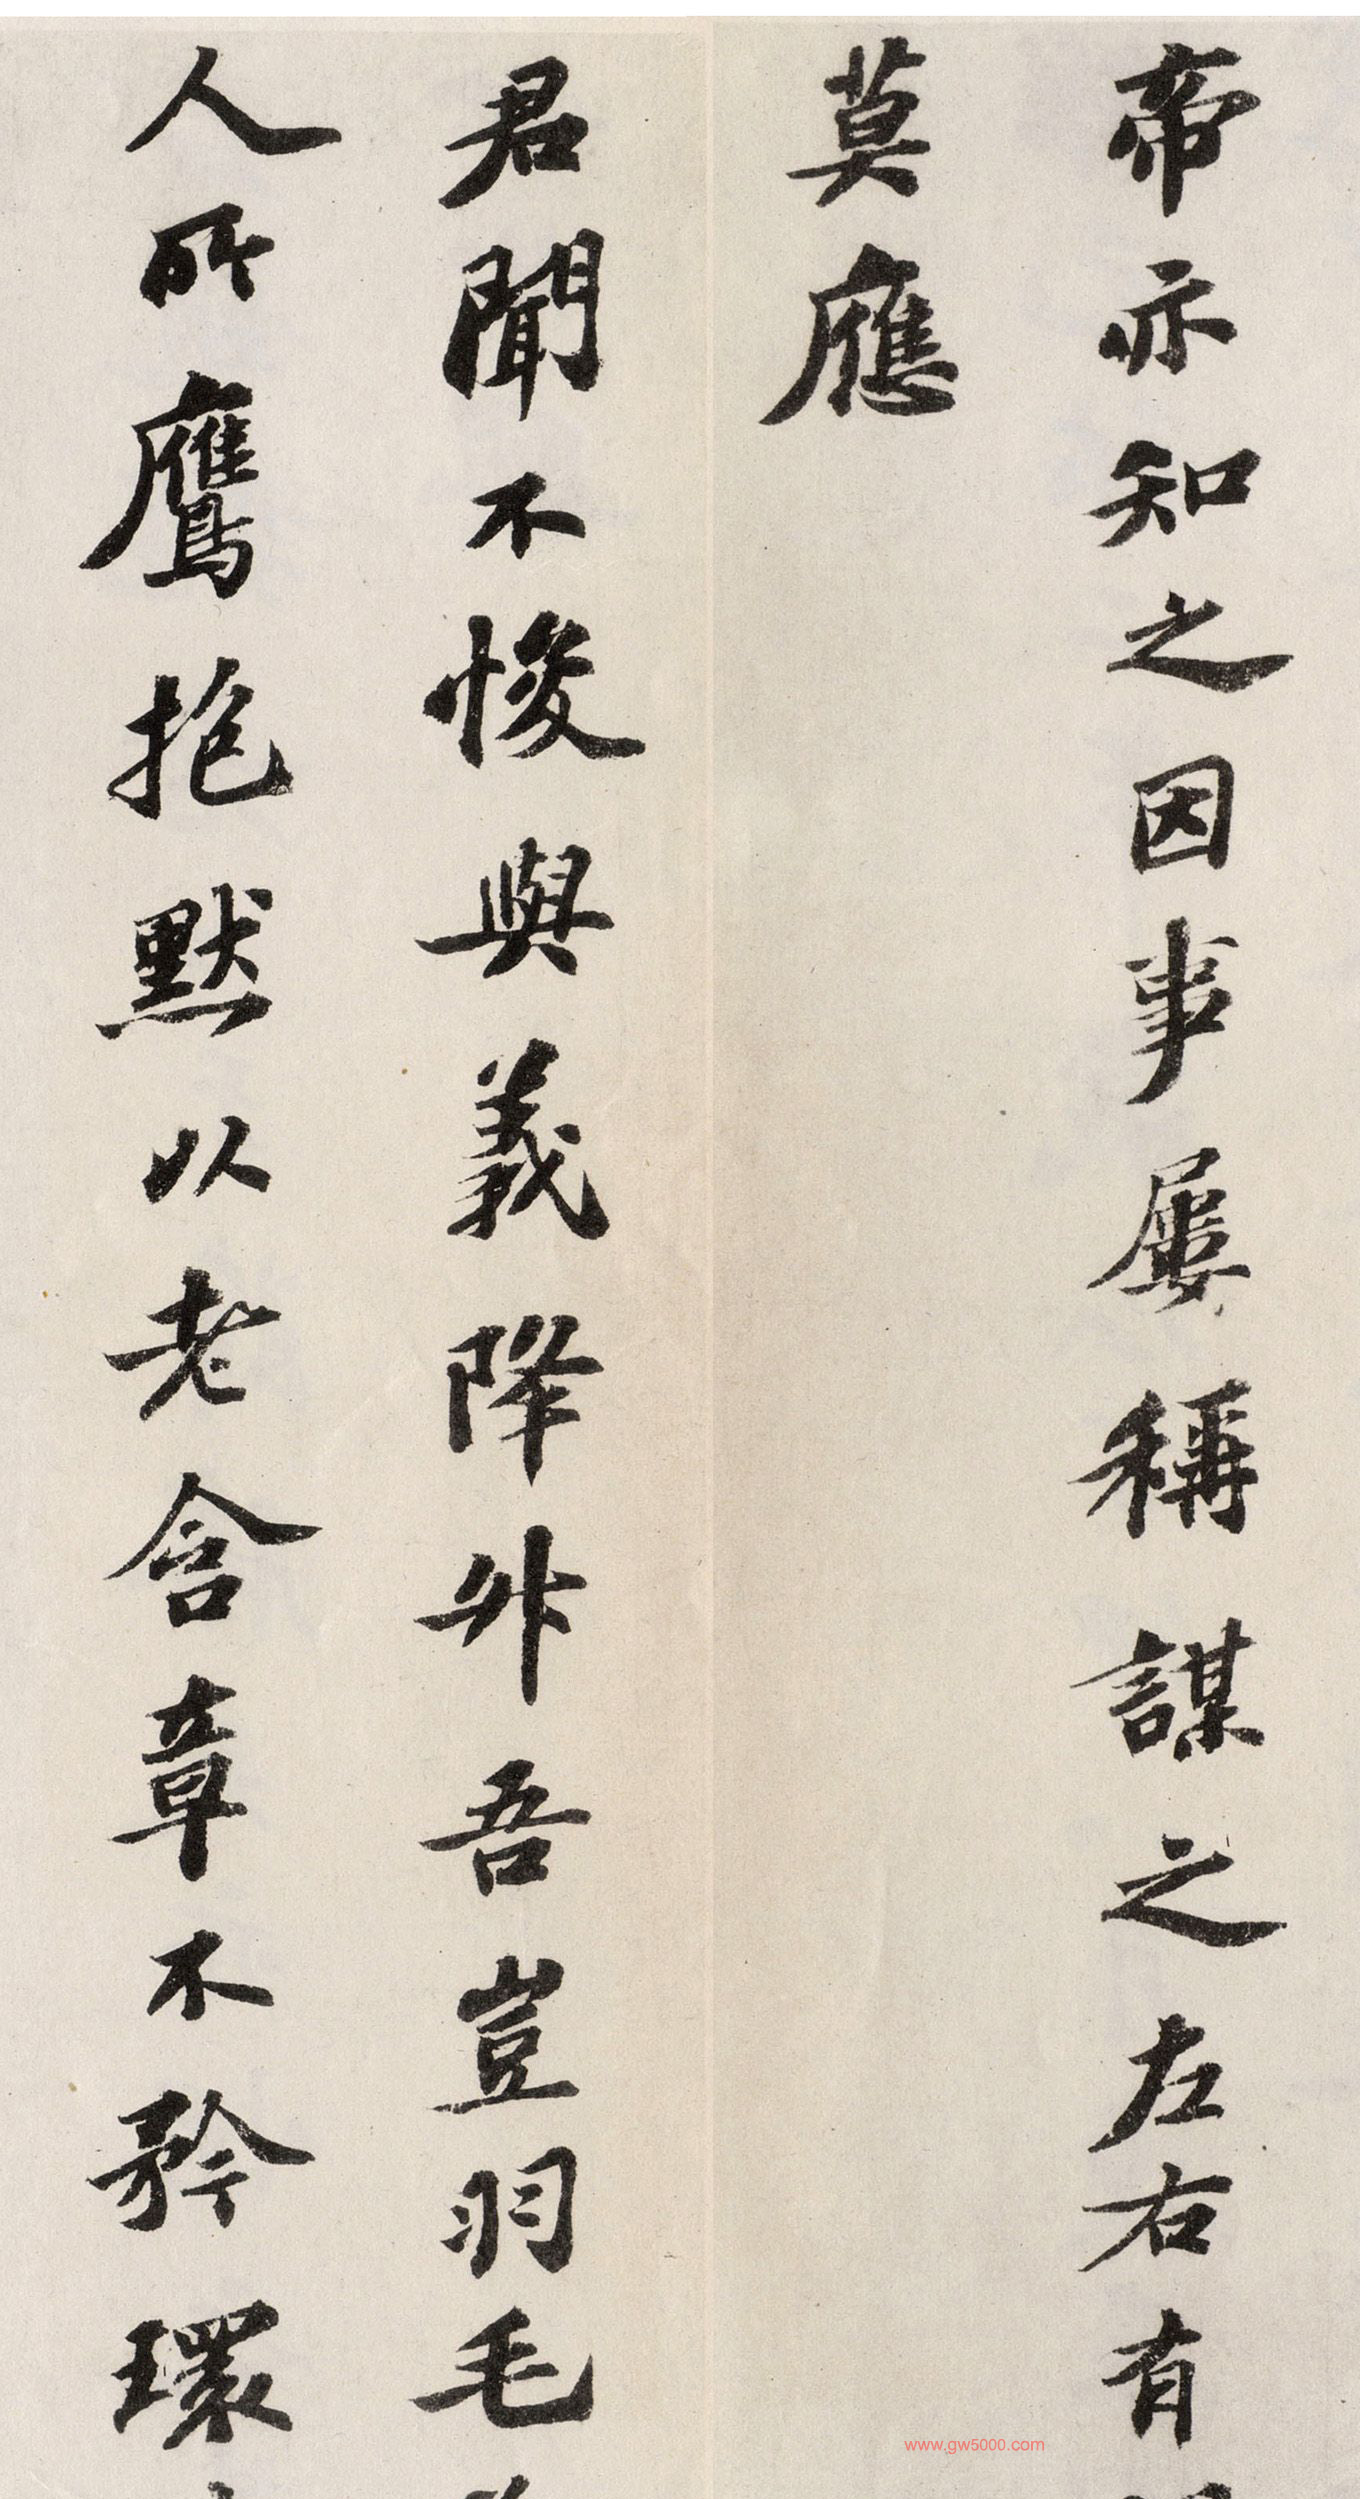 帝亦知之因事屢稱謀之左右有
莫應
君聞不悛與義降升吾豈羽毛
人所鷹抱默以老含章不矜環
www.gw5000.com